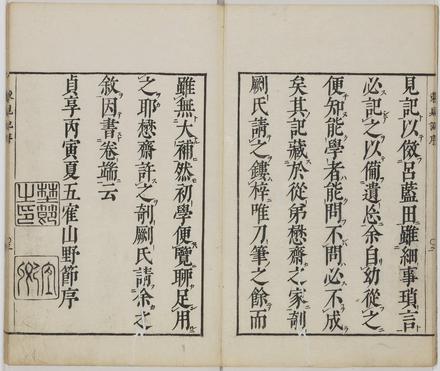 見記以倣呂藍田雖細事瑣言
必記之以備遺忘余自幼從之
便知能學者能問不問必不成
矣其記藏於從弟懋齋之家剞
劂氏請之鏤梓唯刀筆之餘而
雖無大補然初學便覽聊足用
之耶懋齋許之剞劂氏請余之
敘因書卷端云
貞享丙寅夏五寉山野節序